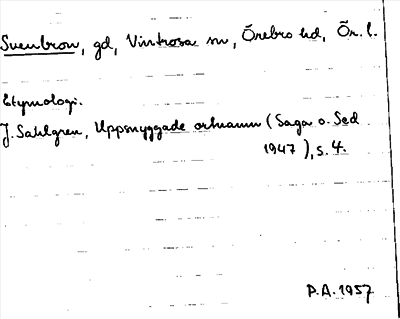 Svenbron, gd, Vintrosa sn, Örebro hd, Ör. l.
Etymologi.
J. Sahlgren, Uppsnyggade ortnamn (Saga o. Sed
1947), s. 4.
P.A. 1957